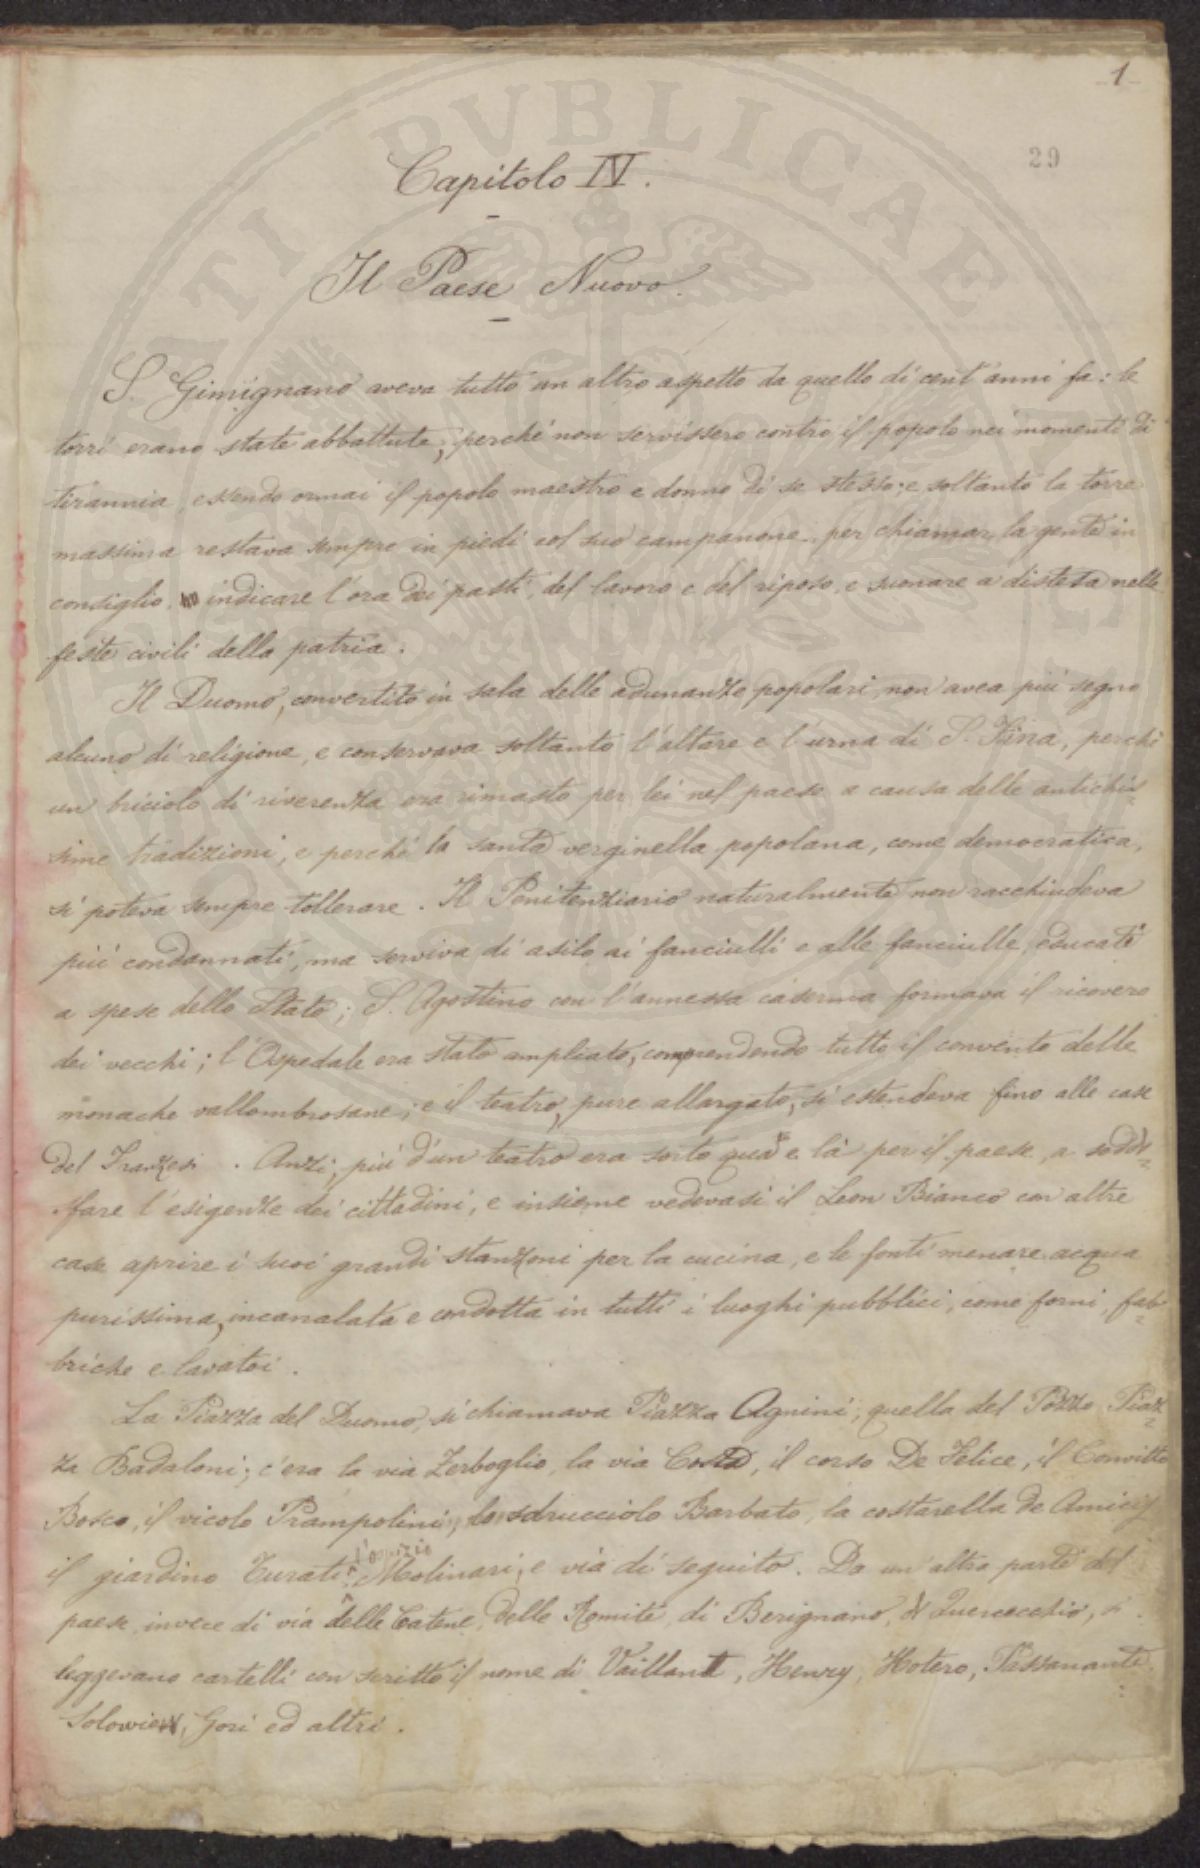 1
29
Capitolo IV.
Il Paese Nuovo.
S. Gimignano aveva tutto un altro aspetto da quello di cent'anni fa: le
torri erano state abbattute, perché non servissero contro il popolo nei momenti di
tirannia, essendo ormai il popolo maestro e donno di se stesso; e soltanto la torre
massima restava sempre in piedi col suo campanone, per chiamar la gente in
consiglio, indicare l'ora dei pasti, del lavoro e del riposo, e suonare a distesa nelle
feste civili della patria.
Il Duomo, convertito in sala delle adunanze popolari, non avea più segno
alcuno di religione, e conservava soltanto l'altare e l'urna di S. Fina, perchè
un briciolo di riverenza era rimasto per lei nel paese a causa delle antichis=
sime tradizioni, e perchè la santa verginella popolana, come democratica,
si poteva sempre tollerare. Il Penitenziario naturalmente non racchiudeva
più condannati, ma serviva di asilo ai fanciulli e alle fanciulle, educati
a spese dello Stato; S. Agostino con l'annessa caserma formava il ricovero
dei vecchi; l'Ospedale era stato ampliato, comprendendo tutto il convento delle
monache vallombrosane; e il teatro, pure allargato, si estendeva fino alle case
del Franzesi. Anzi, più d'un teatro era sorto qua e là per il paese, a soddis=
fare l'esigenze dei cittadini, e insieme vedevasi il Leon Bianco con altre
case aprire i suoi grandi stanzoni per la cucina, e le fonti menare acqua
purissima, incanalata e condotta in tutti i luoghi pubblici, come forni, fab=
briche e lavatoi.
La Piazza del Duomo, si chiamava Piazza Agnini; quella del Pozzo Piaz=
za Badaloni; c'era la via Zerboglio, la via Costa, il corso De Felice, il Convitto
Bosco, il vicolo Prampolini, lo sdrucciolo Barbato, la costarella de Amicis
il giardino Turati, l'ospizio Molinari, e via di seguito. Da un'altra parte del
paese, invece di via delle Catene, delle Romite, di Berignano, di Quercecchio, si
leggevano cartelli con scritto il nome di Vaillant, Henry, Hotero, Passanante,
Solowiew, Gori ed altri.